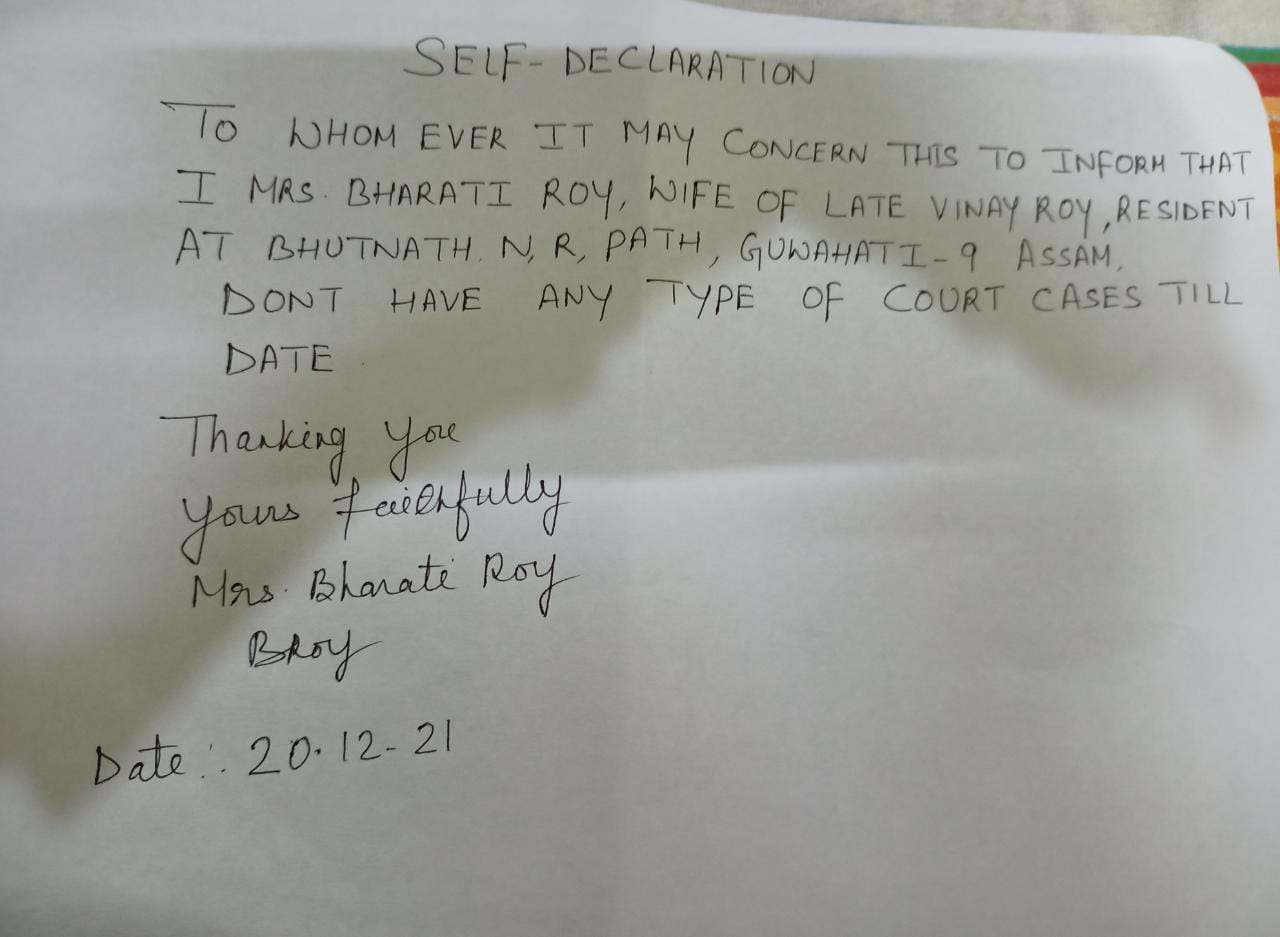 SELF-DECLARATION
TO WHOM EVER IT MAY CONCERN THIS TO INFORM THAT
I MRS. BHARATI ROY, WIFE OF LATE VINAY ROY, RESIDENT
AT BHUTNATH. N, R, PATH, GUWAHATI-9 ASSAM.
DONT HAVE ANY TYPE OF COURT CASES TILL
DATE.
Thanking you
Yours faithfully
Mrs. Bharati Roy
BRoy
Date:. 20.12-21